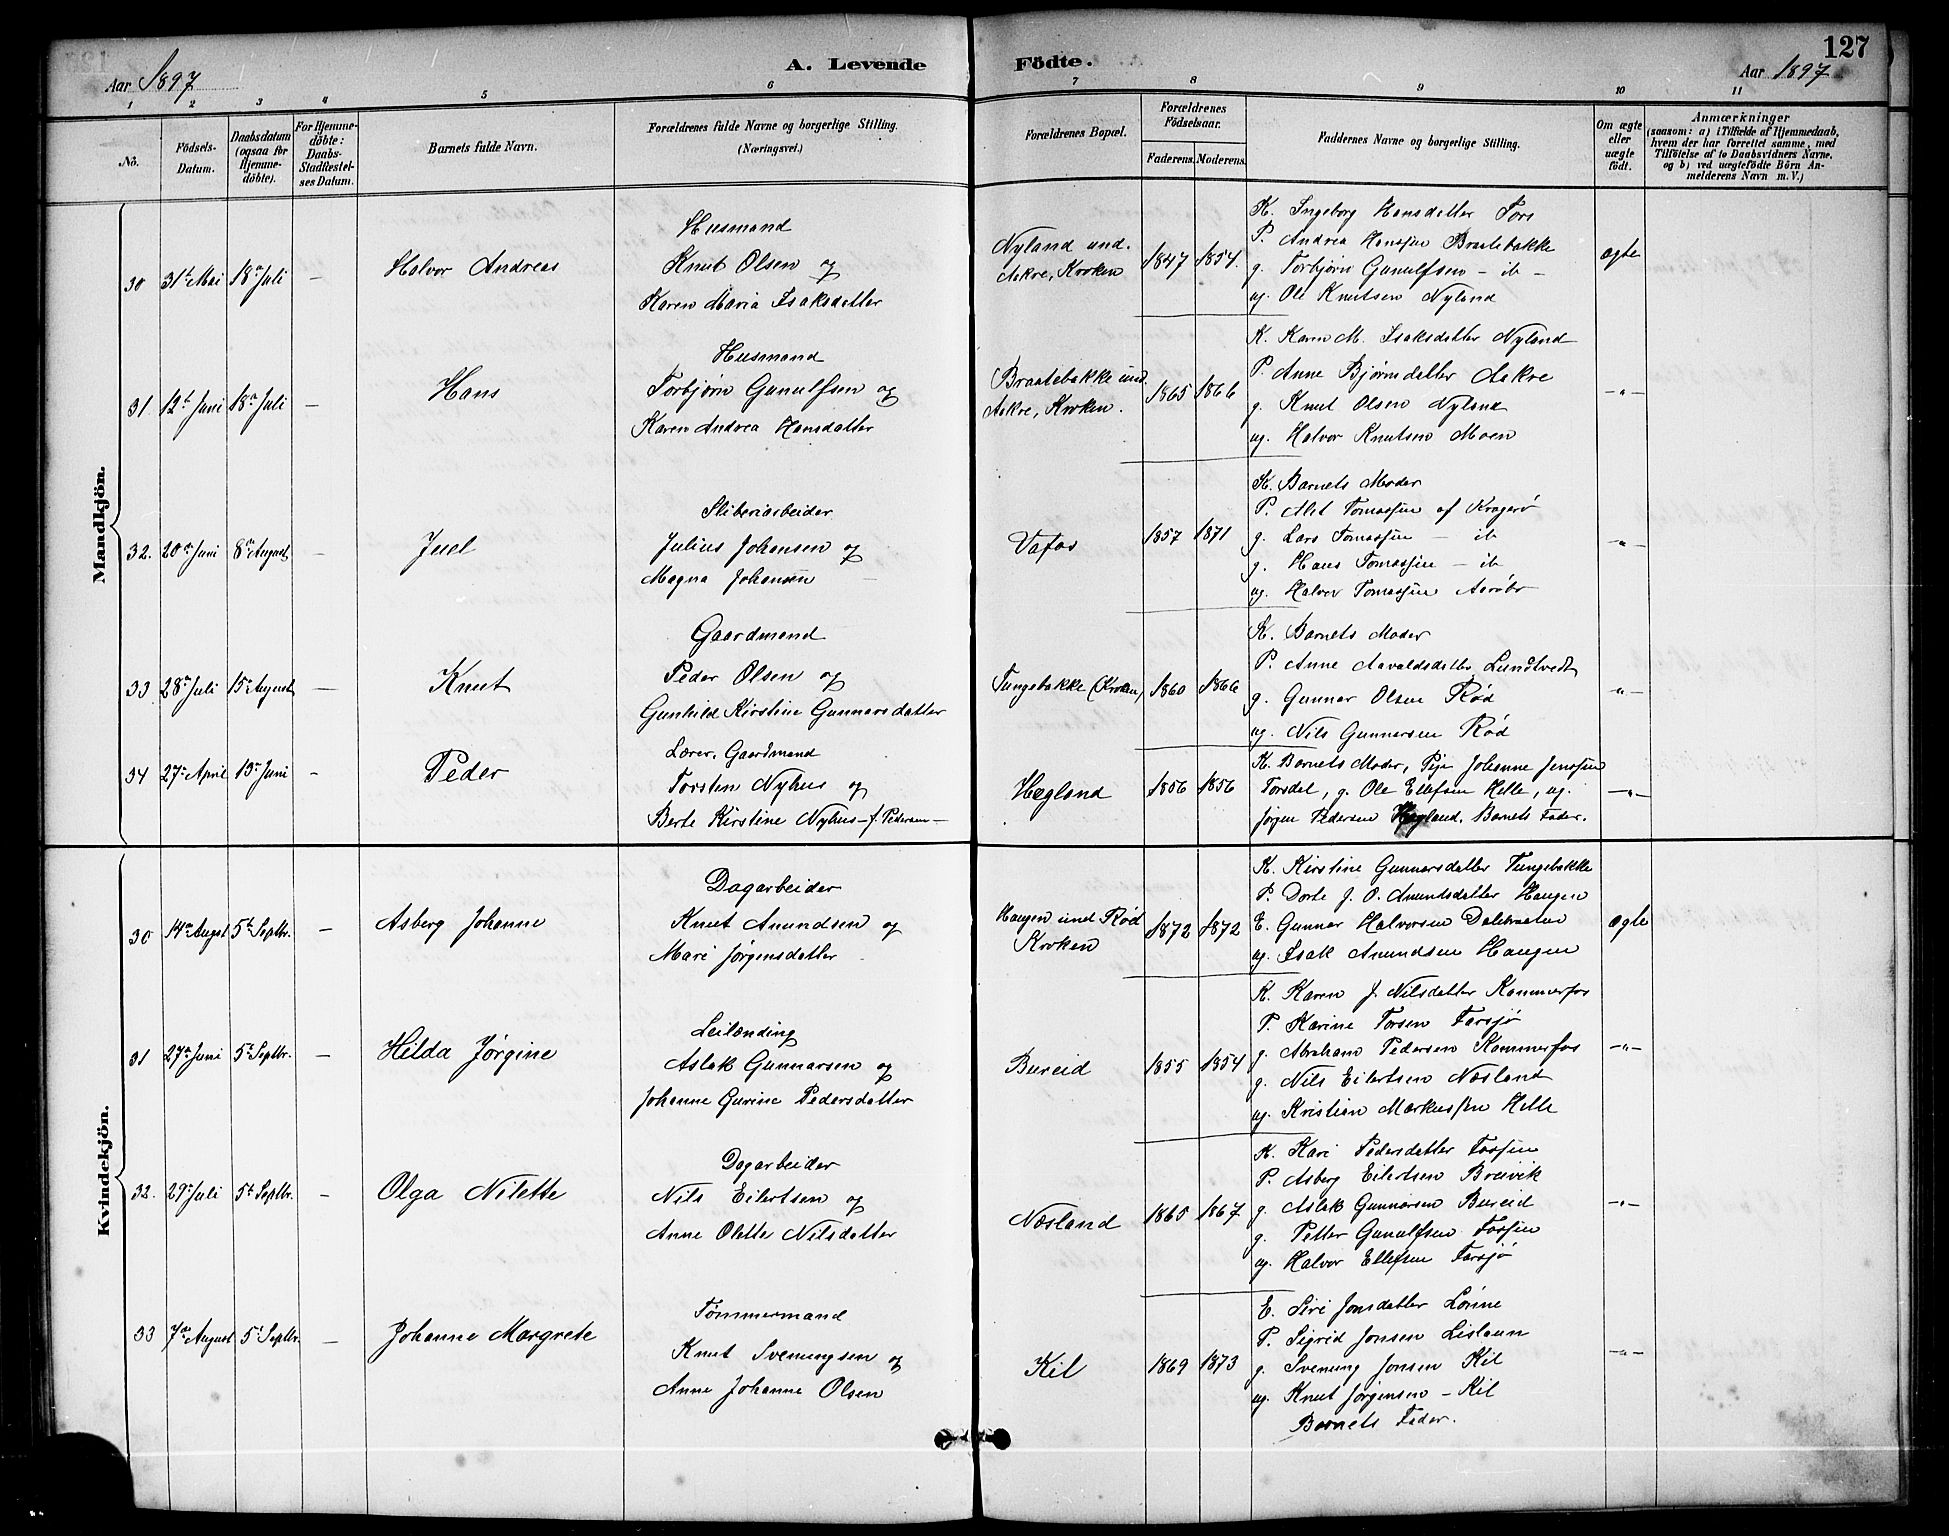 Aar 1897
A. Levende Födte.
127
Aar 1897
1 2 3 4 5 6 7 8 9 10 11
No.
Födsels-Datum.
Daabsdatum (ogsaa for Hjemme-döbte).
For Hjemme-döbte: Daabs-Stadfæstel-ses Datum.
Barnets fulde Navn.
Forældrenes fulde Navne og borgerlige Stilling.
(Næringsvei.)
Forældrenes Bopæl.
Forældrenes Födselsaar.
Faderens. Moderens.
Faddernes Navne og borgerlige Stilling.
Om ægte eller uægte födt.
Anmærkninger
(saasom: a) i Tilfælde af Hjemmedaab, hvem der har forrettet samme, med Tilföielse af to Daabsvidners Navne, og b) ved uægtefödte Börn An-melderens Navn m. V.)
Mandkjön.
30 31te Mai 18de Juli — Halvor Andreas
Husmand
Knut Olsen og
Karen Maria Isaksdatter
Nyland und.
Aakre, Kroken
1847 1854.
K. Ingeborg Hansdatter Fors
P. Andrea Hanssen Braatebakke
g. Torbjørn Gunulfsen — ib —
ug. Ole Knutsen Nyland
ægte
31 12te Juni 18de Juli — Hans
Husmand
Torbjørn Gunulfsen og
Karen Andrea Hansdatter
Braatebakke und.
Aakre, Kroken.
1865 1866
K. Karen M. Isaksdatter Nyland
P. Anne Bjørnsdatter Aakre
g. Knut Olsen Nyland
ug. Halvor Knutsen Moen
—"—
32. 20de Juni 8de August — Juel
Sliberiarbeider
Julius Johansen og
Magna Johansen
Vafos
1857 1871
K. Barnets Moder
P. Alet Tomassen af Kragerø
g. Lars Tomassen — ib
g. Hans Tomassen — ib
ug. Halvor Tomassen
—"—
33 28de Juli 15de August — Knut
Gaardmand
Peder Olsen og
Gunhild Kirstine Gunnarsdatter
Tungebakke (Kroken)
1860 1866
K. Barnets Moder
P. Anne Aavaldsdatter Lundtvedt
g. Gunnar Olsen Rød
ug. Nils Gunnarsen Rød
—"—
34 27de April 13de Juni — Peder
Lærer, Gaardmand
Torsten Nyhus og
Berte Kirstine Nyhus — f. Pedersen —
Hægland
1856 1856
K. Barnets Moder, Pige Johanne Jenssen
Torsdal, g. Ole Ellefsen Helle, ug.
Jørgen Pedersen Hægland. Barnets Fader.
—"—
Kvindekjön.
30 14de Augst 5te Septbr. — Asberg Johanne
Dagarbeider
Knut Anundsen og
Mari Jørgensdatter
Haugen und Rød
Kroken
1872 1872
K. Kirstine Gunnarsdatter Tungebakke
P. Dorte J. O. Anundsdatter Haugen
E. Gunnar Halvorsen Dalekraaen
ug. Isak Anundsen Haugen
ægte
31 27de Juni 5te Septbr. — Hilda Jørgine
Leilænding
Aslak Gunnarsen og
Johanne Gurine Pedersdatter
Bureid
1855 1854
K. Karen J. Nilsdatter Kammerfos
P. Karine Torsen Farsjø
g. Abraham Pedersen Kammerfos
g. Nils Eilertsen Næsland
ug. Kristian Markussen Helle
—"—
32. 29de Juli 5te Septbr. — Olga Nilette
Dagarbeider
Nils Eilertsen og
Anne Olette Nilsdatter
Næsland
1865 1867
K. Kari Pedersdatter Fossen
P. Asberg Eilertsen Breivik
g. Aslak Gunnarsen Bureid
g. Petter Gunulfsen Fossen
ug. Halvor Ellefsen Farsjø
—"—
33 7de August 5te Septbr. — Johanne Margrete
Tømmermand
Knut Svenungsen og
Anne Johanne Olsen
Kil
1869 1873
E. Siri Jonsdatter Lønne
P. Sigrid Jonsen Lislaun
g. Svenung Jonsen Kil
ug. Knut Jørgensen — Kil
Barnets Fader.
—"—